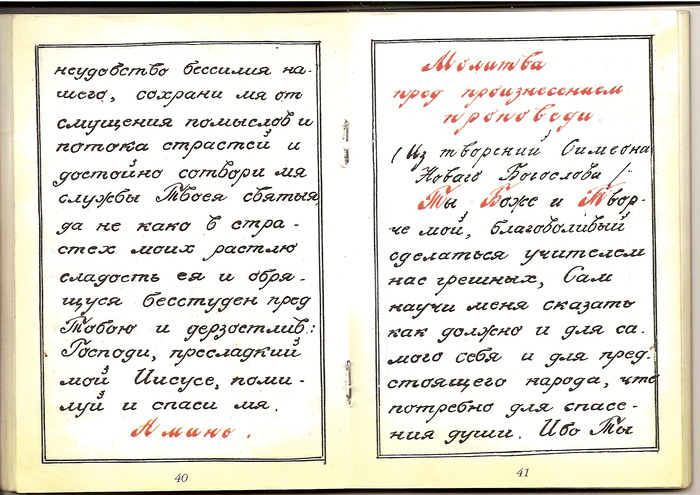 неудовство бессилия на-
шего, сохрани мя от
смущения помыслов и
потока страстей и
достойно сотвори мя
службы Твоея святыя,
да не како в стра-
стех моих растлю
сладость ея и обря-
щуся бесстуден пред
Тобою и дерзостлив:
Господи, пресладкий
мой Иисусе, поми-
луй и спаси мя.
Аминь.
40
Молитва
пред произнесением
проповеди
(Из творений Симеона
Новаго Богослова)
Ты Боже и Твор-
че мой, благоволивый
сделаться учителем
нас грешных, Сам
научи меня сказать
как должно и для са-
мого себя и для пред-
стоящего народа, что
потребно для спасе-
ния души. Ибо Ты
41